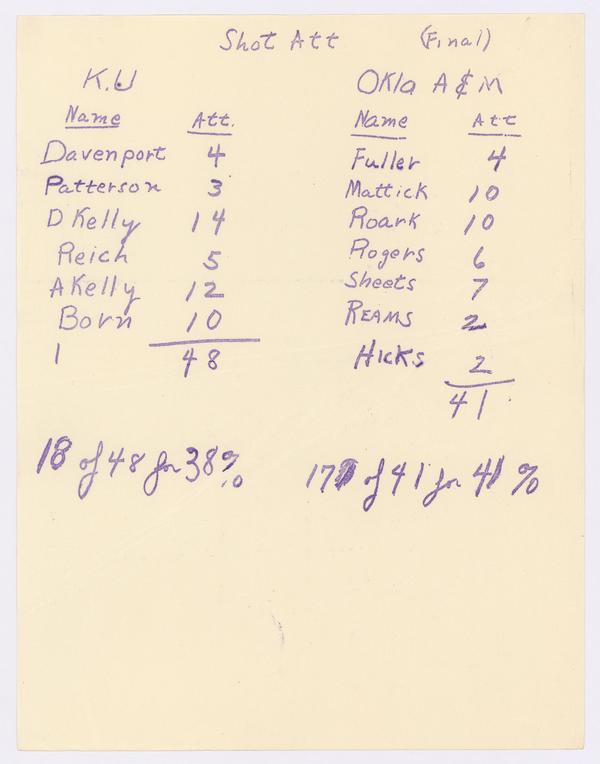 Shot Att (Final)
K.U
Name Att.
Davenport 4
Patterson 3
D Kelly 14
Reich 5
A Kelly 12
Born 10
1 48
18 of 48 for 38%
Okla A & M
Name Att
Fuller 4
Mattick 10
Roark 10
Rogers 6
Sheets 7
REAMS 2
HICKS 2
41
17 of 41 for 41 %